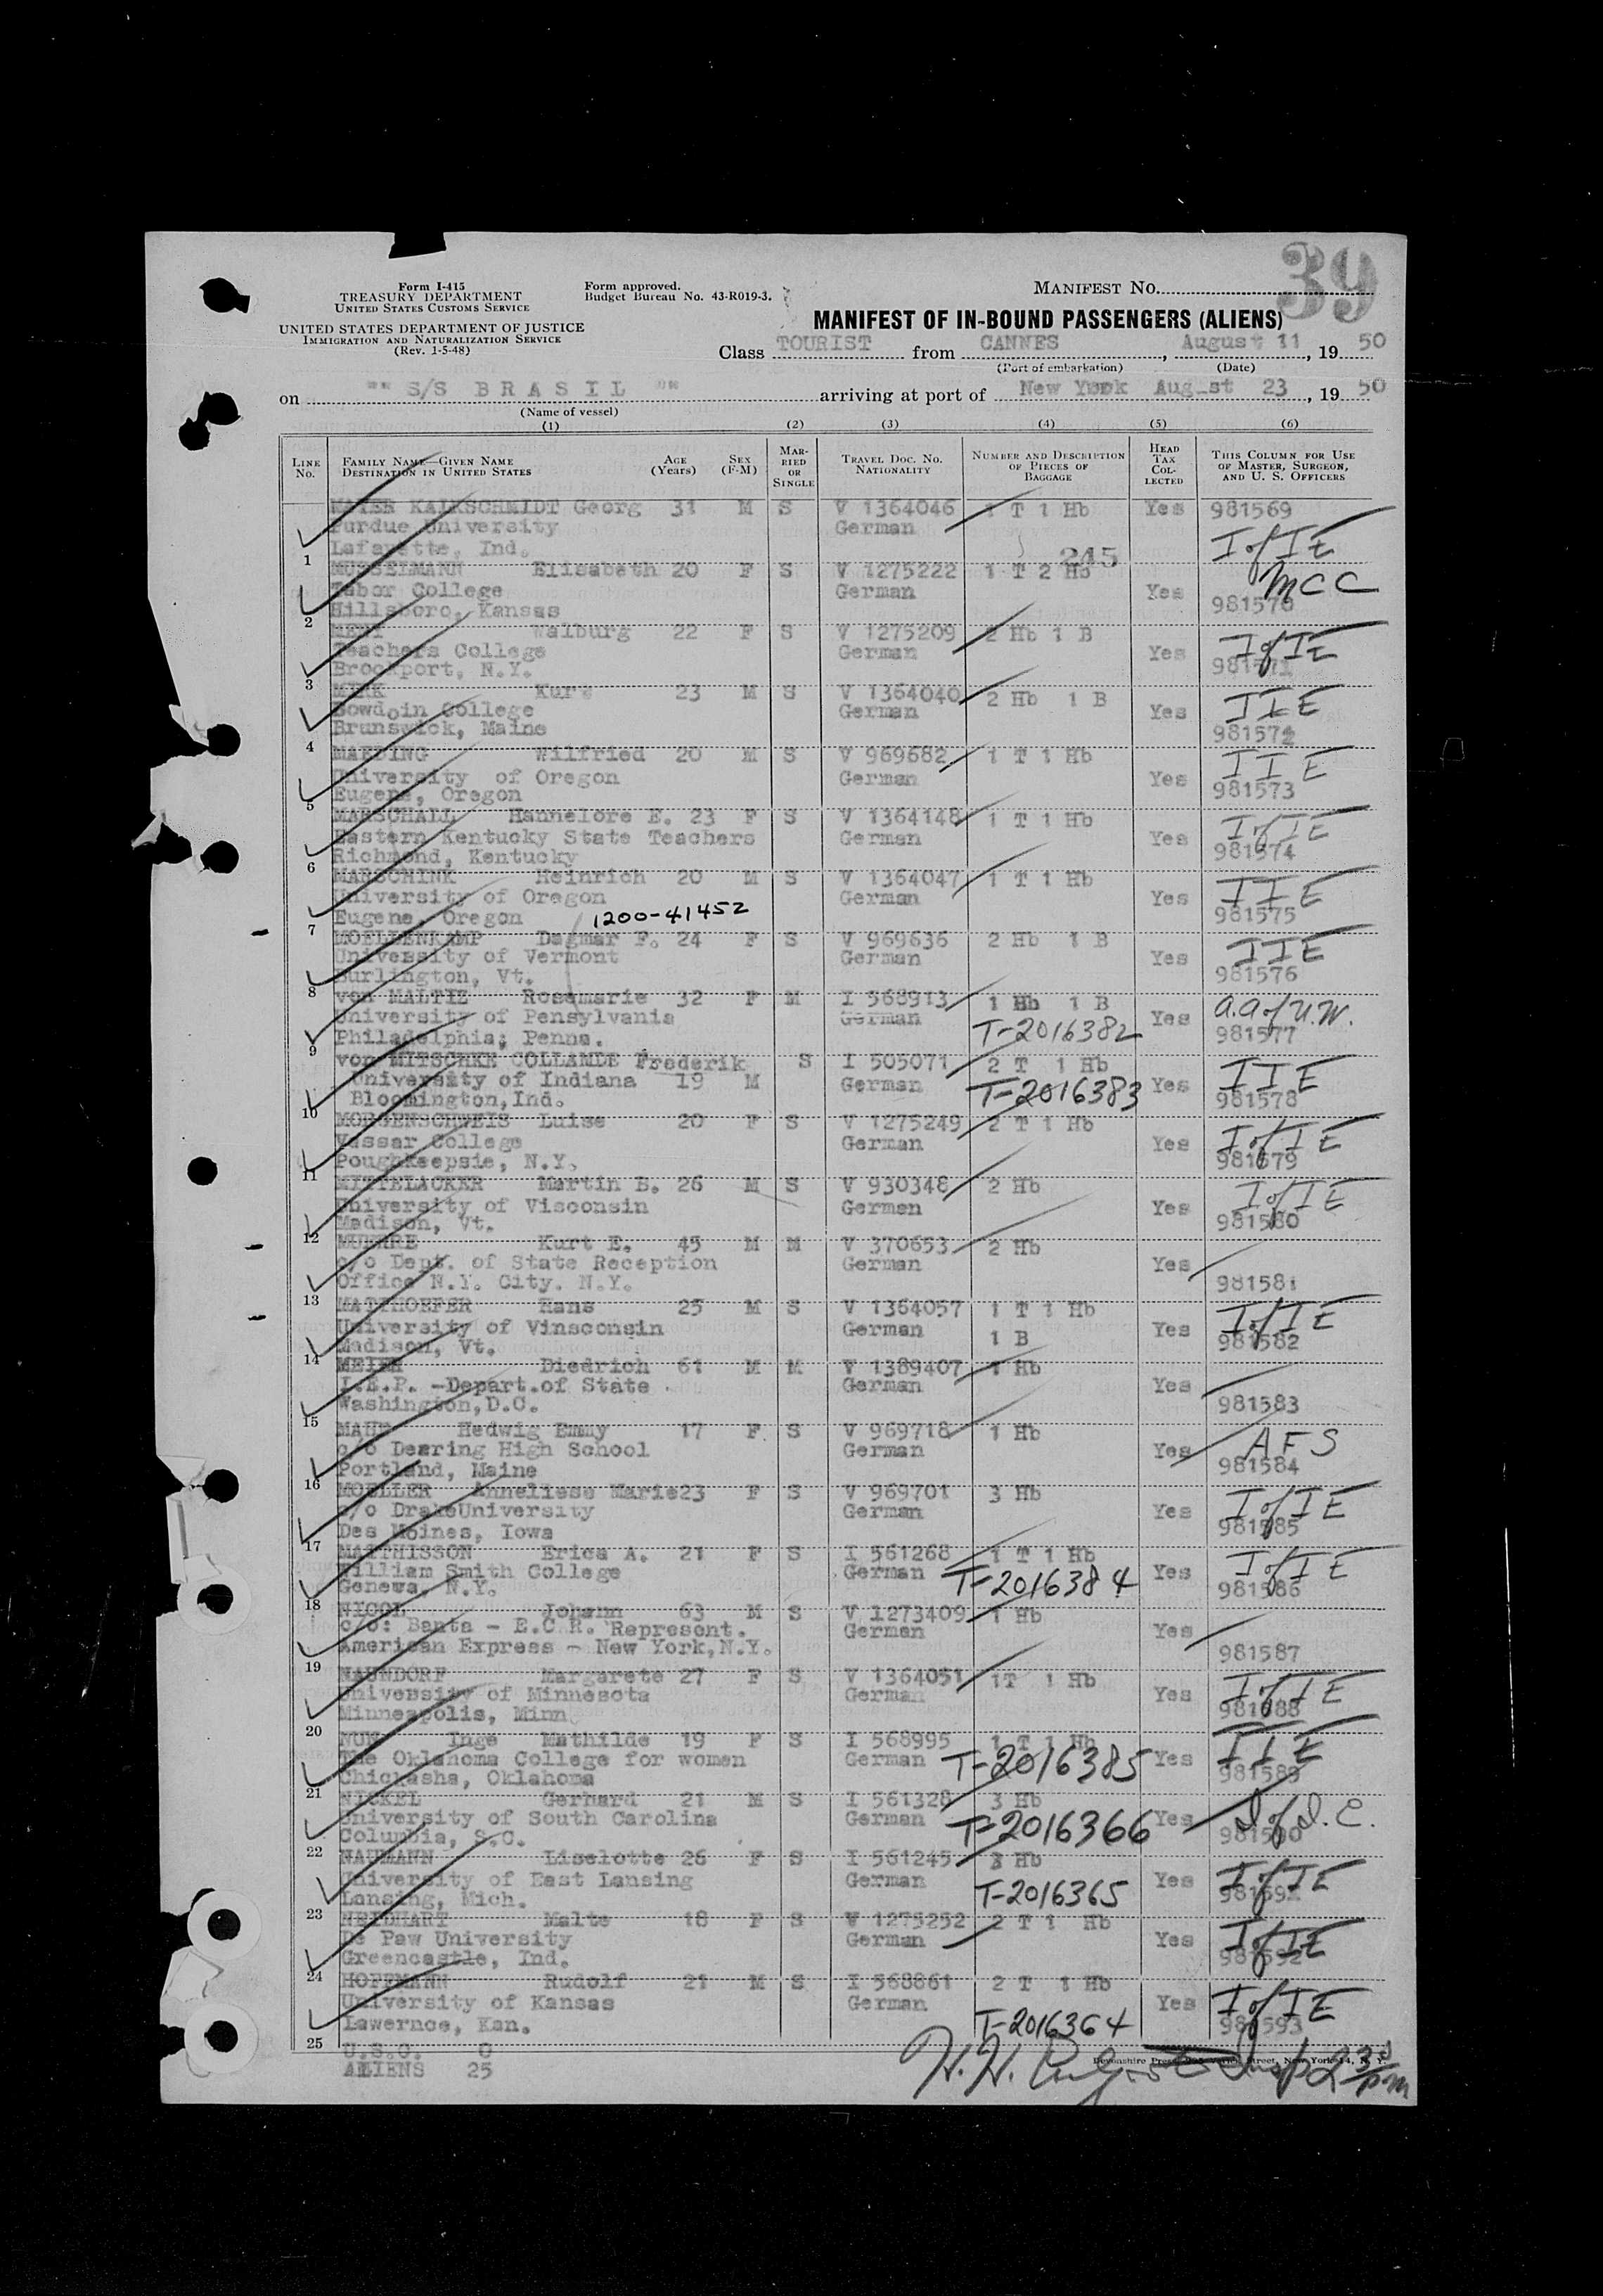 39
Form I-415
TREASURY DEPARTMENT
UNITED STATES CUSTOMS SERVICE
UNITED STATES DEPARTMENT OF JUSTICE
IMMIGRATION AND NATURALIZATION SERVICE
(Rev. 1-5-48)
Form approved.
Budget Bureau No. 43-R019-3.
MANIFEST NO.
MANIFEST OF IN-BOUND PASSENGERS (ALIENS)
Class TOURIST from CANNES, August 11, 19 50
(Port of embarkation) (Date)
on "" S/S B R A S I L "" arriving at port of New York August 23, 19 50
(Name of vessel)
(1) (2) (3) (4) (5) (6)
LINE NO. FAMILY NAME—GIVEN NAME DESTINATION IN UNITED STATES AGE (Years) SEX (F-M) MARRIED OR SINGLE TRAVEL DOC. NO. NATIONALITY NUMBER AND DESCRIPTION OF PIECES OF BAGGAGE HEAD TAX COLLECTED THIS COLUMN FOR USE OF MASTER, SURGEON, AND U. S. OFFICERS
MAYER KAIKSCHMIDT Georg 31 M S V 1364046 1 T 1 Hb Yes 981569
Purdue University German
Lafayette, Ind. I of IE
1 245
MUSSELMANN Elisabeth 20 F S V 1275222 1 T 2 Hb MCC
Tabor College German Yes
Hillsboro, Kansas 981570
2
Walburg 22 F S V 1275209 2 Hb 1 B I of IE
Teachers College German Yes
Brockport, N.Y. 981571
3
MERK Kurt 23 M S V 1364040 2 Hb 1 B IIE
Bowdoin College German Yes
Brunswick, Maine 981572
4
MAEDING Wilfried 20 M S V 969682 1 T 1 Hb IIE
University of Oregon German Yes
Eugene, Oregon 981573
5
MARSCHALL Hannelore E. 23 F S V 1364148 1 T 1 Hb I of IE
Eastern Kentucky State Teachers German Yes
Richmond, Kentucky 981574
6
MARSCHINK Heinrich 20 M S V 1364047 1 T 1 Hb IIE
University of Oregon German Yes
Eugene, Oregon 1200-41452 981575
7
MOELLENKAMP Dagmar F. 24 F S V 969636 2 Hb 1 B IIE
University of Vermont German Yes
Burlington, Vt. 981576
8
von MALTIZ Rosemarie 32 F M I 568913 1 Hb 1 B A.A of U.W.
University of Pensylvania German Yes
Philadelphia; Penna. T-2016382 981577
9
von MITSCHKE COLLANDE Frederik S I 505071 2 T 1 Hb IIE
University of Indiana 19 M German Yes
Bloomington, Ind. T-2016383 981578
10
MORGENSCHWEIS Luise 20 F S V 1275249 2 T 1 Hb I of IE
Vassar College German Yes
Poughkeepsie, N.Y. 981579
11
MITTELACKER Martin B. 26 M S V 930348 2 Hb I of IE
University of Visconsin German Yes
Madison, Vt. 981580
12
Kurt E. 45 M M V 370653 2 Hb
c/o Dept. of State Reception German Yes
Office N.Y. City. N.Y. 981581
13
MATTHOEFER Hans 25 M S V 1364057 1 T 1 Hb I of IE
University of Vinsconsin German 1 B Yes
Madison, Vt. 981582
14
MEIER Diedrich 61 M M V 1389407 1 Hb
I.E.P. -Depart.of State German Yes
Washington,D.C. 981583
15
Hedwig Emmy 17 F S V 969718 1 Hb AFS
c/o Deering High School German Yes
Portland, Maine 981584
16
MOELLER Anneliese Marie 23 F S V 969701 3 Hb I of IE
c/o DrakeUniversity German Yes
Des Moines, Iowa 981585
17
MATTHISSON Erica A. 21 F S I 561268 1 T 1 Hb I of IE
William Smith College German T-2016384 Yes
Genewa, N.Y. 981586
18
NICOL Johann 63 M S V 1273409 1 Hb
c/o: Banta - E.C.R. Represent. German Yes
American Express - New York,N.Y. 981587
19
NAUNDORF Margarete 27 F S V 1364051 1T 1 Hb I of IE
University of Minnesota German Yes
Minneapolis, Minn 981588
20
Inge Mathilde 19 F S I 568995 1 T 1 Hb IIE
The Oklahoma College for women German T-2016385 Yes
Chickasha, Oklahoma 981589
21
NICKEL Gerhard 21 M S I 561328 3 Hb I of I.E.
University of South Carolina German T-2016366 Yes
Columbia, S.C. 981590
22
NAUMANN Liselotte 26 F S I 561245 3 Hb I of IE
University of East Lansing German Yes
Lansing, Mich. T-2016365 981591
23
NEIDHART Malte 18 F S V 1275252 2 T 1 Hb I of IE
De Paw University German Yes
Greencastle, Ind. 981592
24
HOFFMANN Rudolf 21 M S I 568861 2 T 1 Hb I of IE
University of Kansas German Yes
Lawernce, Kan. T-2016364 981593
25
U.S.C. 0
ALIENS 25
Devonshire Press Street, New York 14, N. Y.
H.H. Insp 2 30 pm